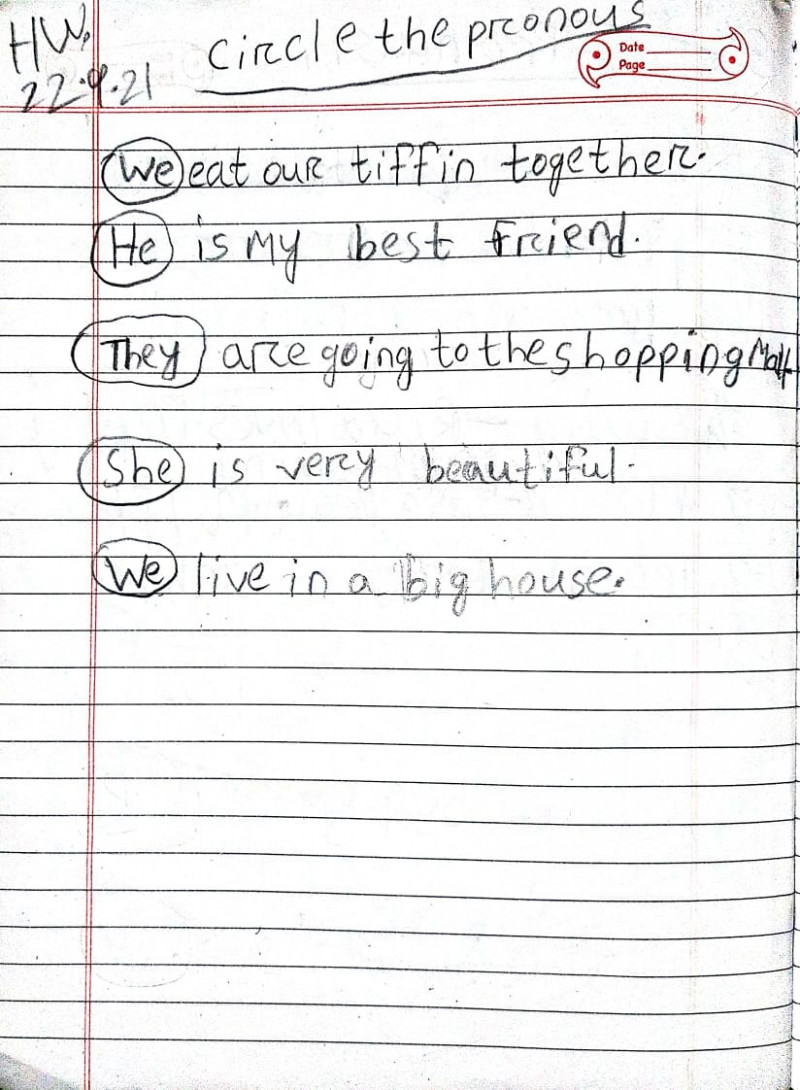 HW.
22.9.21
Circle the pronous
Date
Page
We eat our tiffin together.
He is my best friend.
They are going to the shopping Mall
She is very beautiful.
We live in a big house.